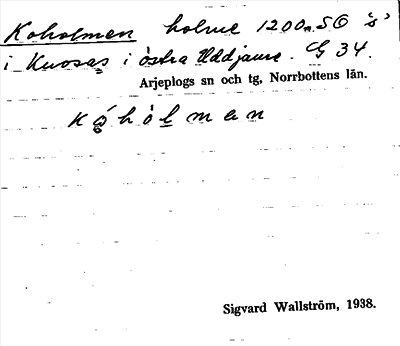 Koholmen holme 1200 m SO "s"
i Kuosas i östra Uddjaure. G 34.
Arjeplogs sn och tg, Norrbottens län.
kóhòlman
Sigvard Wallström, 1938.